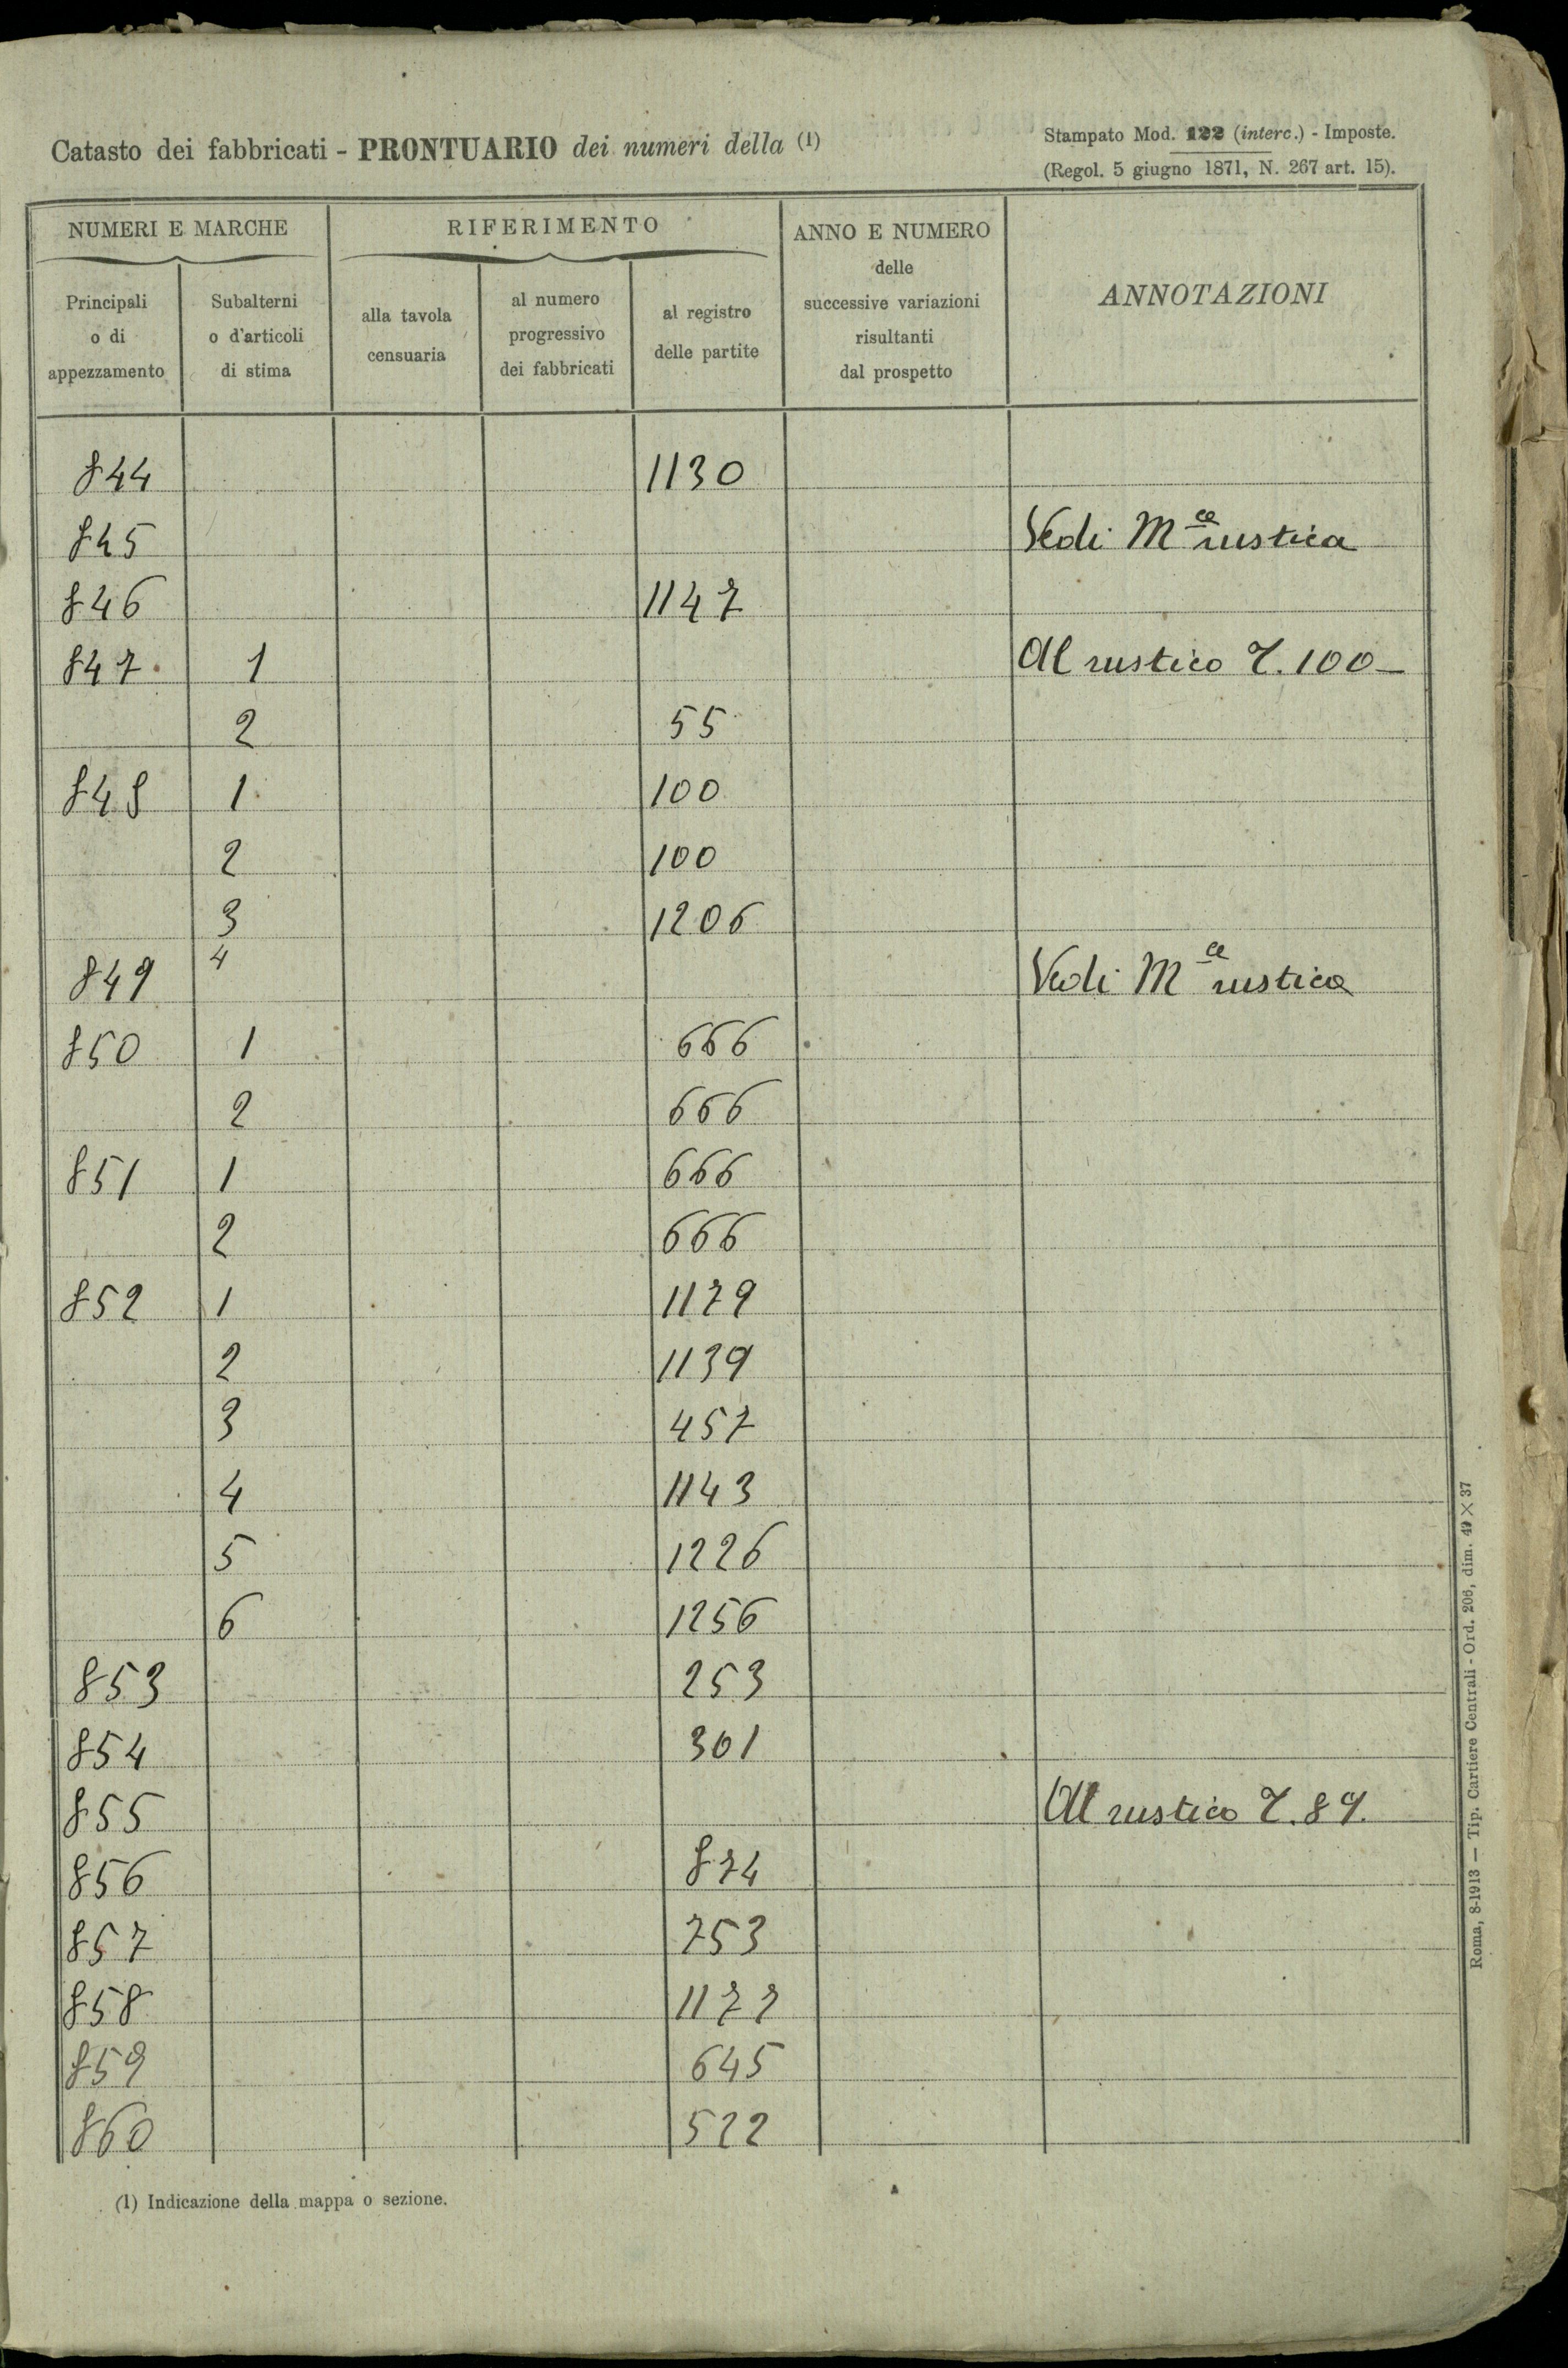 Catasto dei fabbricati - PRONTUARIO dei numeri della (1)
Stampato Mod. 122 (interc.) - Imposte.
(Regol. 5 giugno 1871, N. 267 art. 15).
NUMERI E MARCHE RIFERIMENTO ANNO E NUMERO delle successive variazioni risultanti dal prospetto ANNOTAZIONI
Principali o di appezzamento Subalterni o d'articoli di stima alla tavola censuaria al numero progressivo dei fabbricati al registro delle partite
844 1130
845 Vedi Mce rustica
846 1147
847 1 Al rustico T. 100
2 55
848 1 100
2 100
3 1206
4
849 Vedi Mce rustica
850 1 666
2 666
851 1 666
2 666
852 1 1179
2 1139
3 457
4 1143
5 1226
6 1256
853 253
854 301
855 Al rustico T. 89.
856 874
857 753
858 1177
859 645
860 522
(1) Indicazione della mappa o sezione.
Roma, 8-1913 — Tip. Cartiere Centrali - Ord. 206, dim. 49 × 37